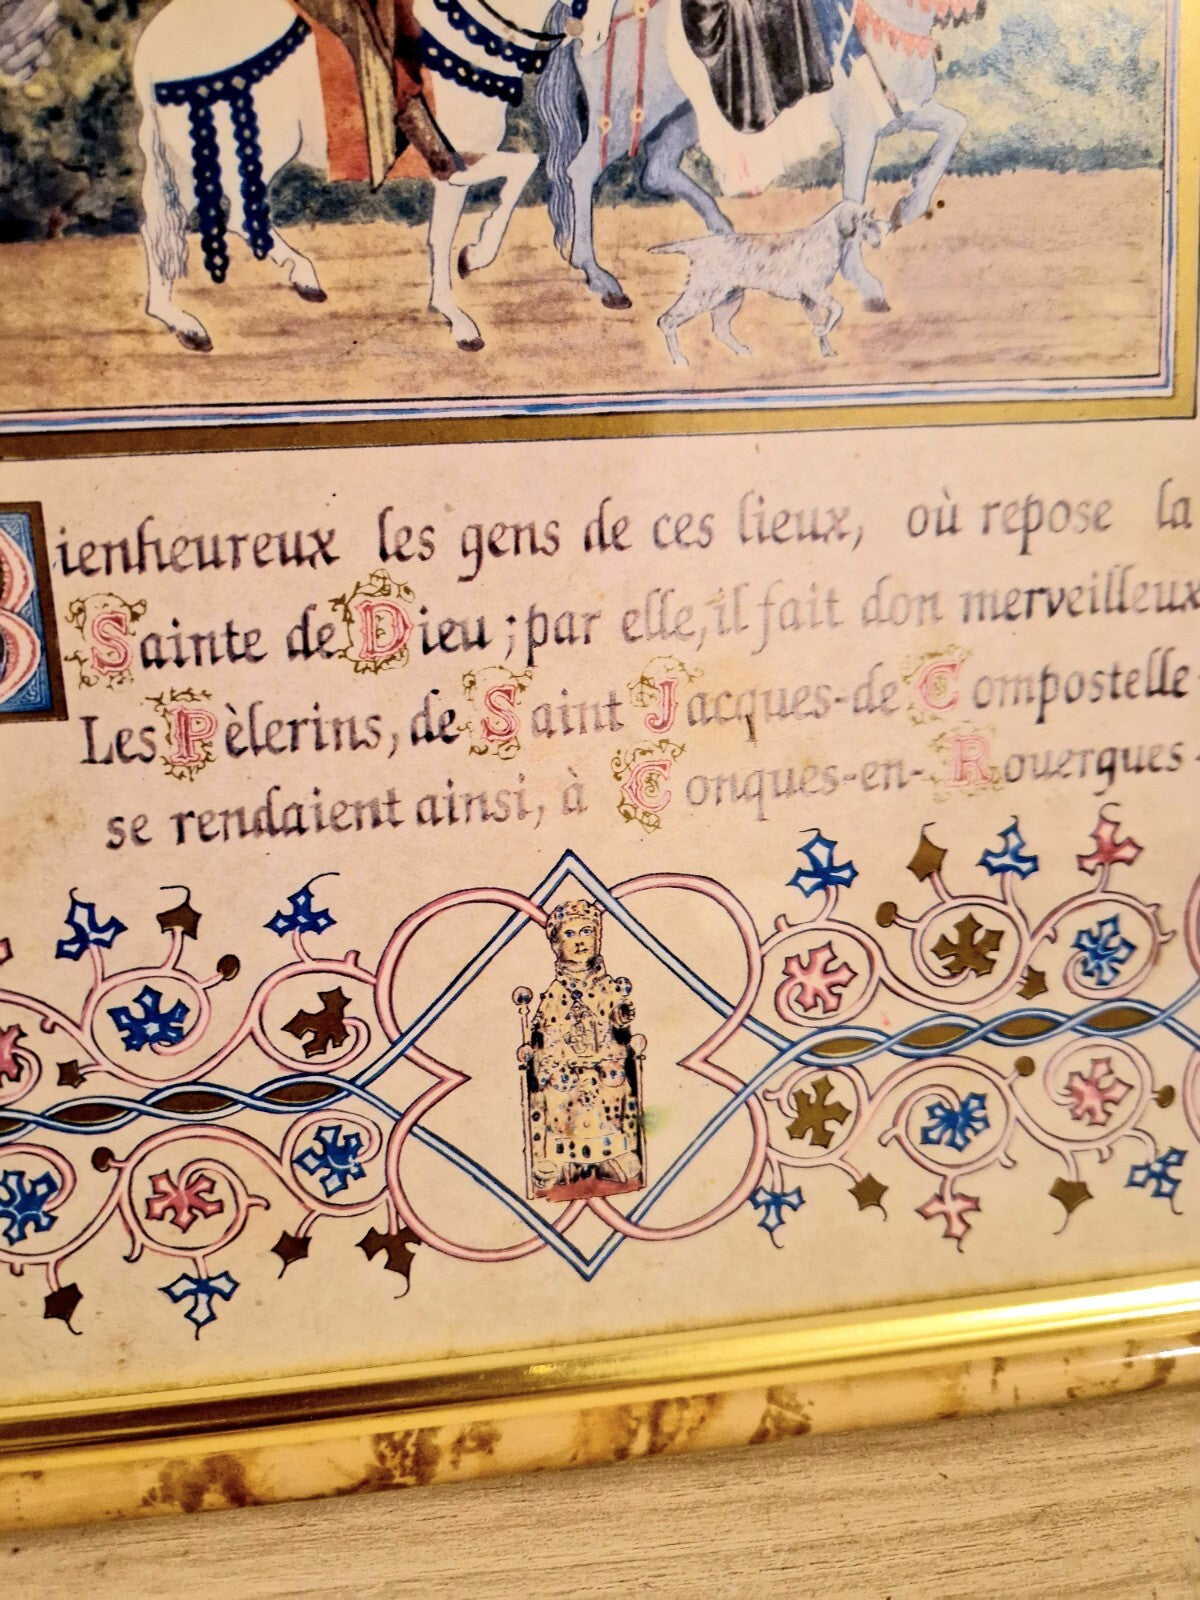 Bienheureux les gens de ces lieux, où repose la
Sainte de Dieu ; par elle, il fait don merveilleux
Les Pèlerins, de Saint Jacques-de Compostelle-
se rendaient ainsi, à Conques-en-Rouergues-